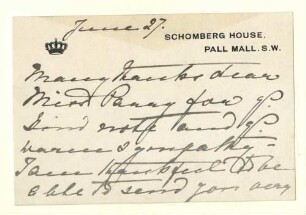 June 27.
SCHOMBERG HOUSE.
PALL MALL. S.W.
Many thanks dear
Miss Parry for yr.
kind note and yr.
warm sympathy –
I am thankful to be
able to send you very